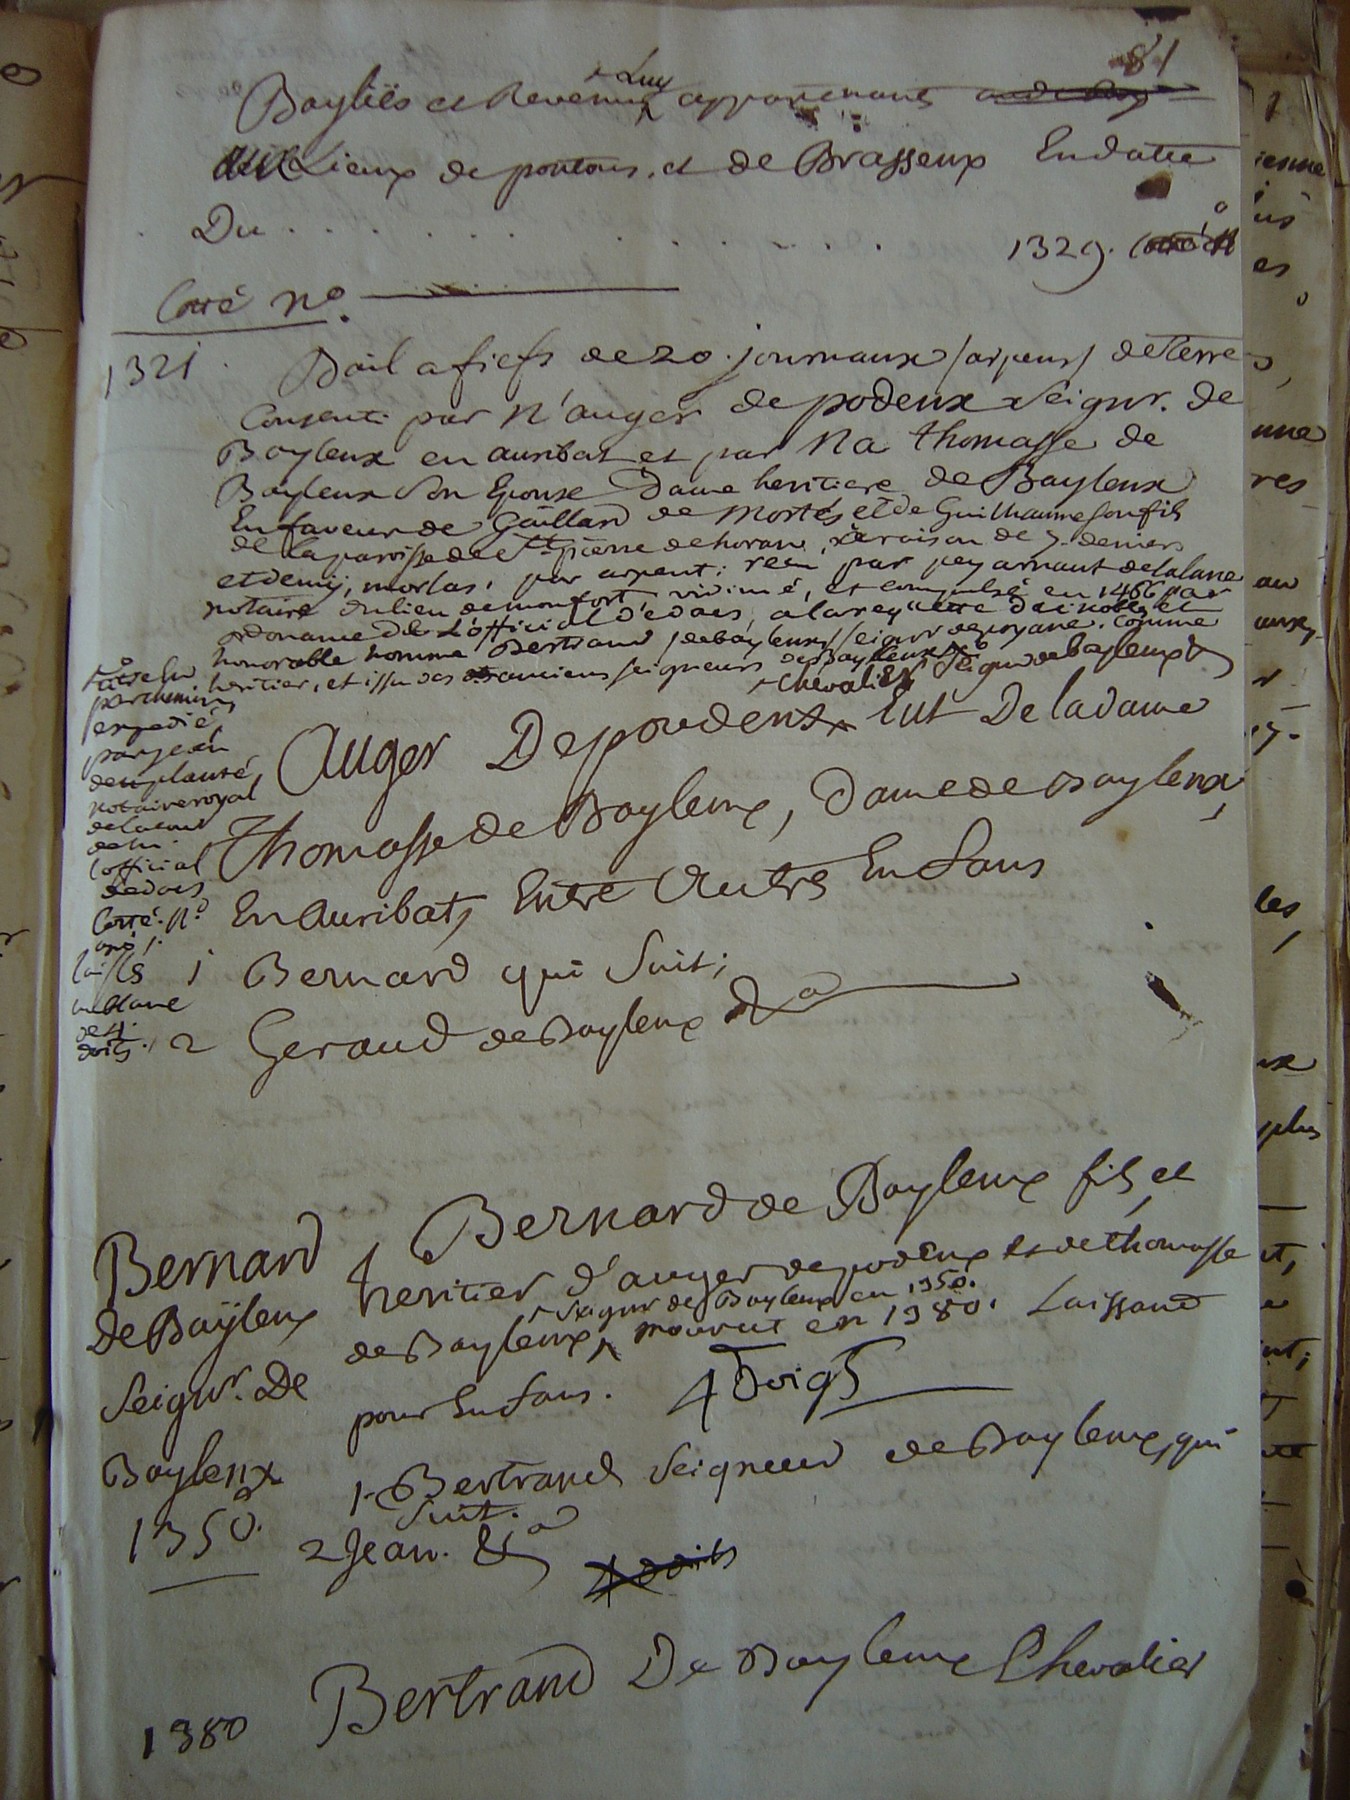 81
Bayliës et Revenus Luy appartenants
aux Lieux de pontons, et de Brasseux En datte
Du . . . . . . . . . . . 1329.
Cotté n°.
1321. Bail a fiefs de 20. journaux /arpens/ de Terre
Consenti par N'auger de podenx Seignr. de
Baylenx en auribat et par Na thomasse de
Baylenx Son Epouse Dame heritiere de Baylenx
En faveur de Gaillard de Mortés et de Guilhaume Son fils
de la paroisse de St. pierre de horan, a raison de 7. deniers
et demy, morlas, par arpent: reçu par pey arnaut de lalane
notaire du lieu de monfort, vidimé, et compulsé en 1466 par
ordonance de L'official d'edacs, a la requette de noble et
honorable homme Bertrand de baylenx Seignr de poyane, Comme
heritier, et issu des anciens seigneurs de Baylenx
titre En
parchemin,
expedié
par jean
deuplanté,
notaire royal
de la cour
de Mr.
l'official
dedacs
Cotté. N°
laissés
en blanc
de 4.
doits.
Chevalier Seignr de baylenx
Auger De poudenx Eut De la dame
Thomasse de Baylenx, Dame de Baylenx
En Auribat, Entre Autres Enfans
1 Bernard qui Suit;
2 Geraud de Baylenx &a
Bernard
de Baÿlenx
Seignr. De
Baylenx
1350.
Bernard de Baylenx fils et
heritier d'auger de podenx et de thomasse
Seignr de Baylenx en 1350.
de Baylenx, mourut en 1380. Laissant
pour Enfans. 4 Doigts
1. Bertrand Seigneur de Baylenx, qui
Suit.
2 Jean. &a
4 doits
1380 Bertrand De Baylenx Chevalier